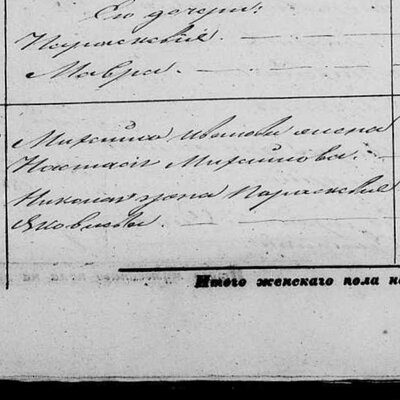 Его дочери:
Парасковья.
Мавра.
Михайла Иванова жена
Настасья Михайлова.
Николая жена Парасковья
Яковлева.
Итого женскаго пола